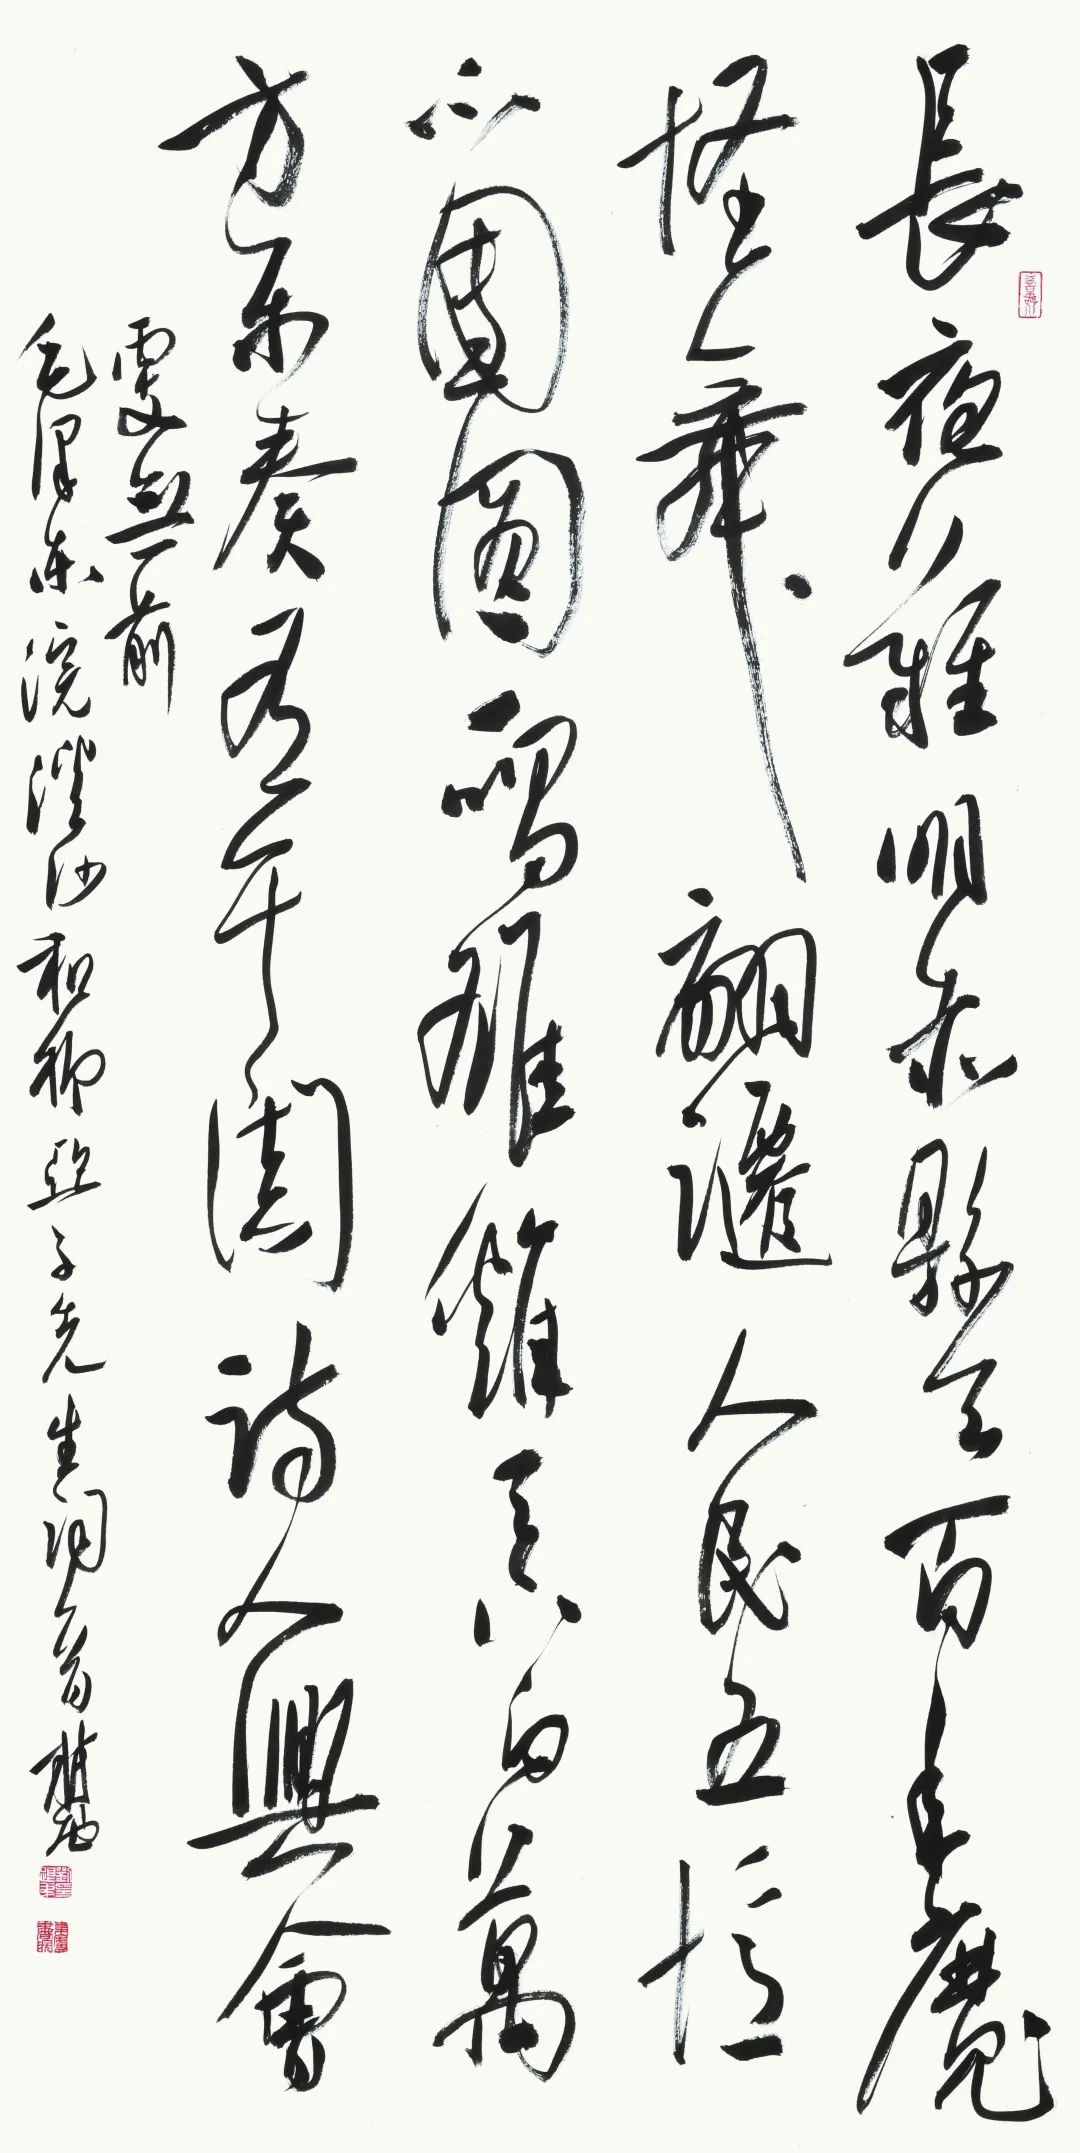 長夜難明赤縣天百年魔
怪舞翩躚人民五億
不團圓一唱雄雞天下白萬
方樂奏有于闐詩人興會
更無前
毛澤東浣溪沙和柳亞子先生詞一首